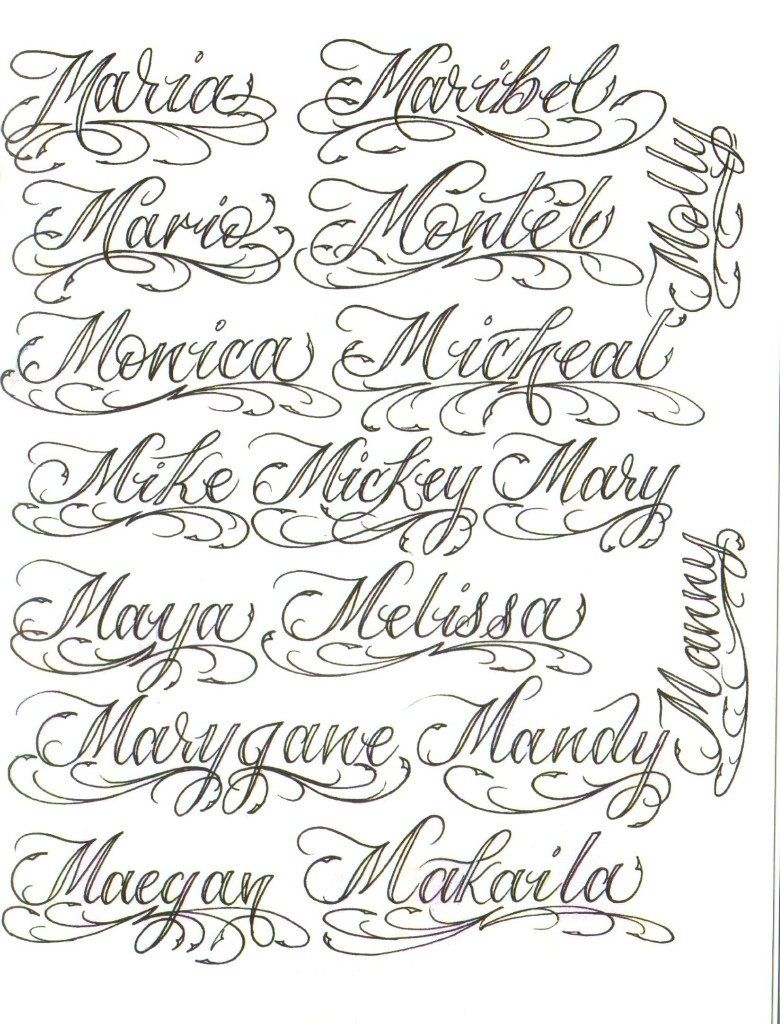 Maria Maribel
Molly
Mario Montel
Monica Micheal
Mike Mickey Mary
Manny
Maya Melissa
Marygane Mandy
Maegan Makaila